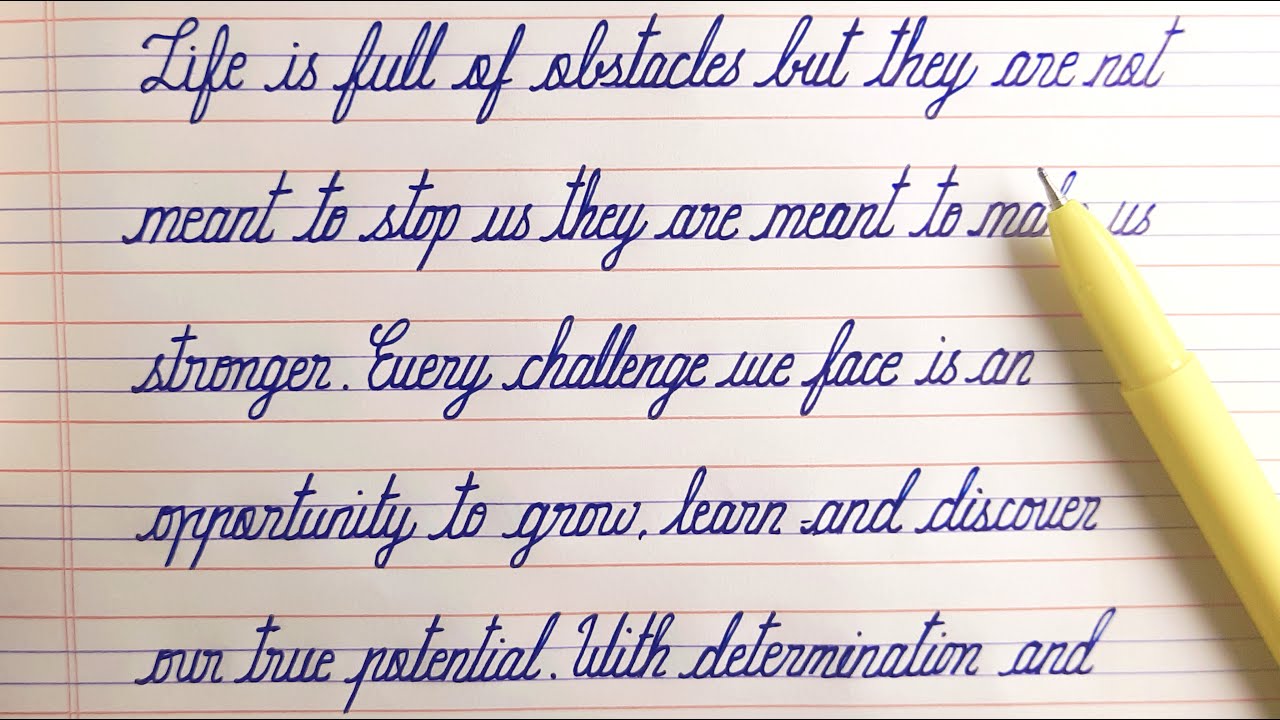 Life is full of obstacles but they are not
meant to stop us they are meant to make us
stronger. Every challenge we face is an
opportunity to grow, learn and discover
our true potential. With determination and